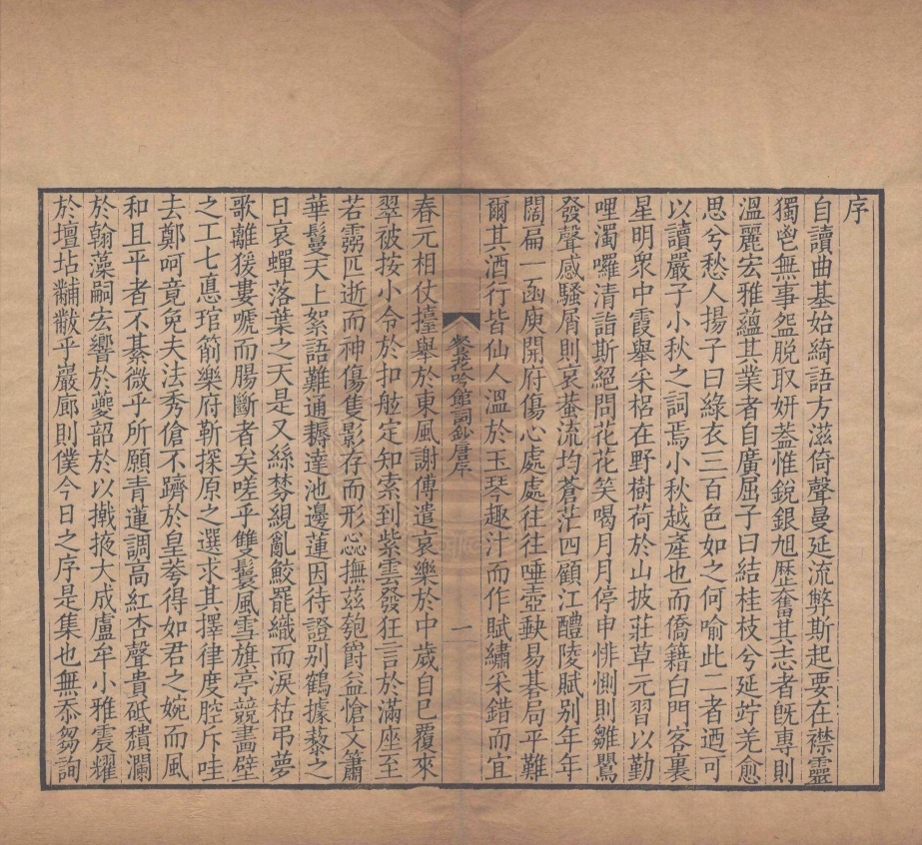 序
自讀曲基始綺語方滋倚聲曼延流弊斯起要在襟靈
獨鬯無事盌脫取妍葢惟銳銀旭歷奮其志者旣專則
溫麗宏雅蘊其業者自廣屈子曰結桂枝兮延竚羌愈
思兮愁人揚子曰綠衣三百色如之何喻此二者迺可
以讀嚴子小秋之詞焉小秋越產也而僑籍白門客裏
星明衆中霞舉采梠在野樹荷於山披莊草元習以勤
哩濁囉清詣斯絕問花花笑喝月月停申悱惻則雛鸎
發聲感騷屑則哀蛬流均蒼茫四顧江醴陵賦別年年
闊扁一函庾開府傷心處處往往唾壺缺易碁局平難
爾其酒行皆仙人溫於玉琴趣汁而作賦繡采錯而宜
春元相仗擡舉於東風謝傅遣哀樂於中歲自巳覆來
翠被按小令於扣舷定知索到紫雲發狂言於滿座至
若霛匹逝而神傷隻影存而形惢撫茲匏爵益愴文簫
華鬘天上絮語難通耨達池邊蓮因待證別鶴據藜之
日哀蟬落葉之天是又絲棼緄亂鮫罷織而淚枯弔夢
歌離猨婁嗁而腸斷者矣嗟乎雙鬟風雪旗亭競畫壁
之工七悳琯箾樂府靳探原之選求其擇律度腔斥哇
去鄭呵竟免夫法秀傖不躋於皇荂得如君之婉而風
和且平者不綦微乎所願青蓮調高紅杏聲貴砥穨瀾
於翰藻嗣宏響於夔韶於以撠掖大成盧牟小雅震耀
於壇坫黼黻乎巖廊則僕今日之序是集也無忝芻詢
餐花吟館詞鈔唐序
一